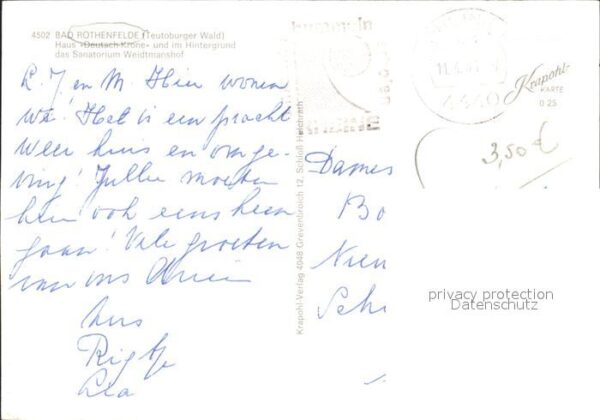 4502 BAD ROTHENFELDE (Teutoburger Wald)
Haus »Deutsch Krone« und im Hintergrund
das Sanatorium Weidtmanshof
L. J en M. Hier wonen
we! Het is een pracht
weer huis en omge-
ving! Jullie moeten
hier ook eens heen
gaan! Vele groeten
van ons
Lea
Krapohl-Verlag 4048 Grevenbroich 12, Schloß Hülchrath
4440
Krapohl-
KARTE
0 25
3,50 €
Dames
Bo
Nieu
Sch
privacy protection
Datenschutz